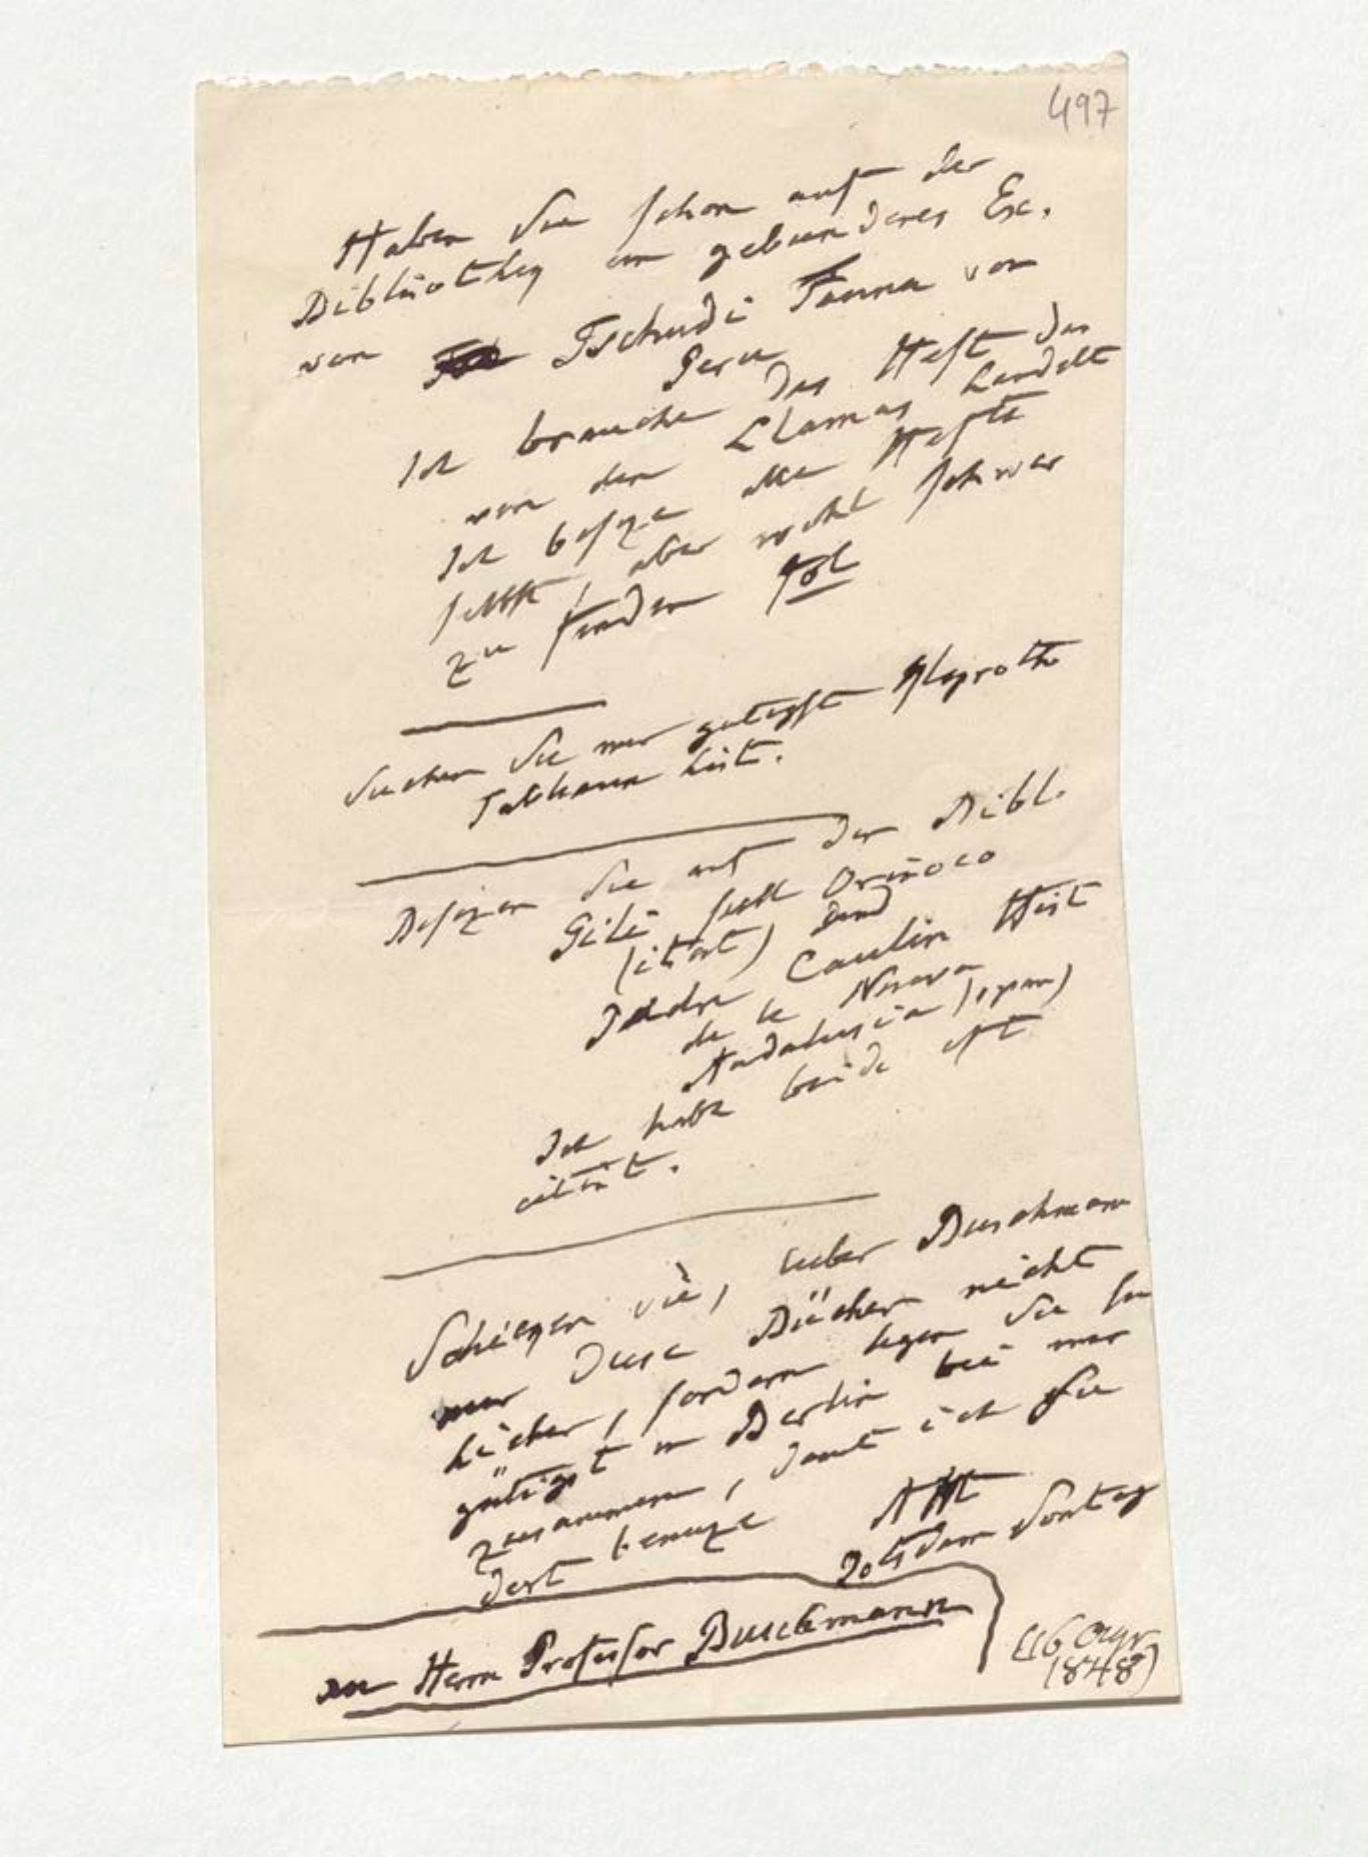 497
Haben Sie schon auf der
Bibliotheq ein gebundenes Ex.
von Tschudi Fauna von
Peru
Ich brauche das Heft das
von den Llamas handelt
Ich besize alle Hefte
selbst, aber nicht schwer
zu finden
Suchen Sie mir gutigst Klaproth
Tableaux hist.
Besizen Sie auf der Bibl.
Gili sull Orinoco
(ital) und
Padre Caulin Hist
de la Nueva
Andalusia (span)
Ich habe beide oft
citirt.
Schiken Sie, lieber Buschmann
mir diese Bücher nicht
hieher, sondern legen Sie sie
gütigst in Berlin bei mir
zusammen, damit ich sie
dort benuze
AHt
Potsdam Sontag
an Herrn Professor Buschmann
(16 Apr
1848)